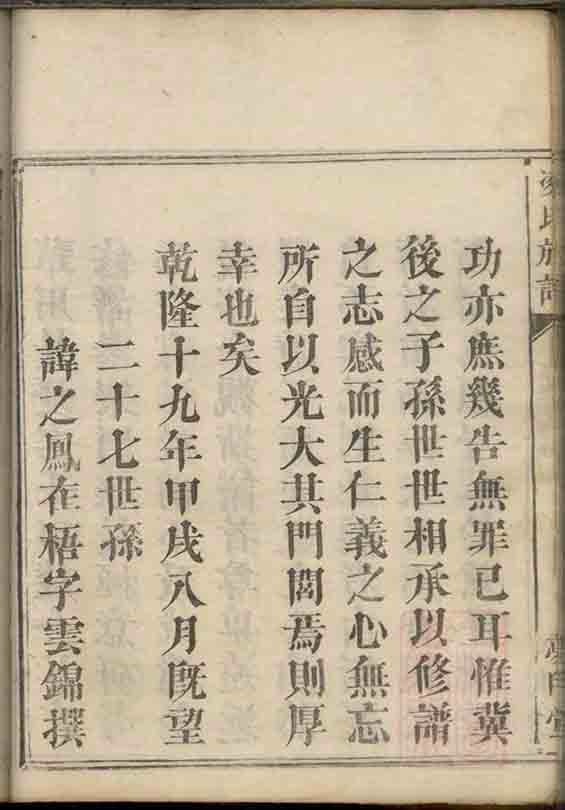 氏族譜
功亦庶幾告無罪已耳惟冀
後之子孫世世相承以修譜
之志感而生仁義之心無忘
所自以光大其門閭焉則厚
幸也矣
乾隆十九年甲戌八月既望
二十七世孫
諱之鳳在梧字雲錦撰